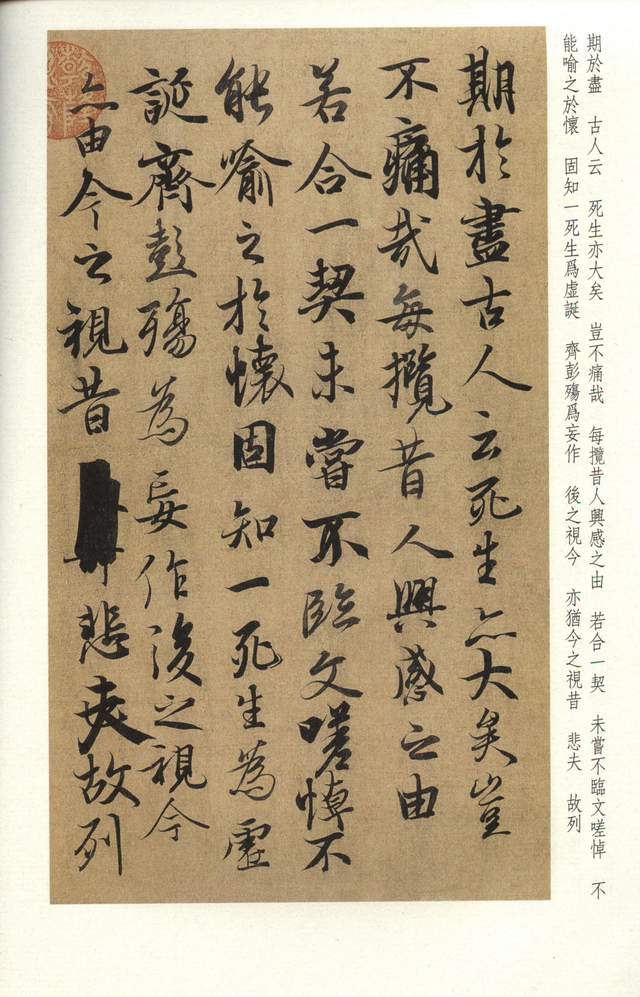 期於盡 古人云 死生亦大矣 豈不痛哉 每攬昔人興感之由 若合一契 未嘗不臨文嗟悼 不
能喻之於懷 固知一死生爲虛誕 齊彭殤爲妄作 後之視今 亦猶今之視昔 悲夫 故列
期於盡古人云死生亦大矣豈
不痛哉每攬昔人興感之由
若合一契未嘗不臨文嗟悼不
能喻之於懷固知一死生為虛
誕齊彭殤為妄作後之視今
亦由今之視昔悲夫故列